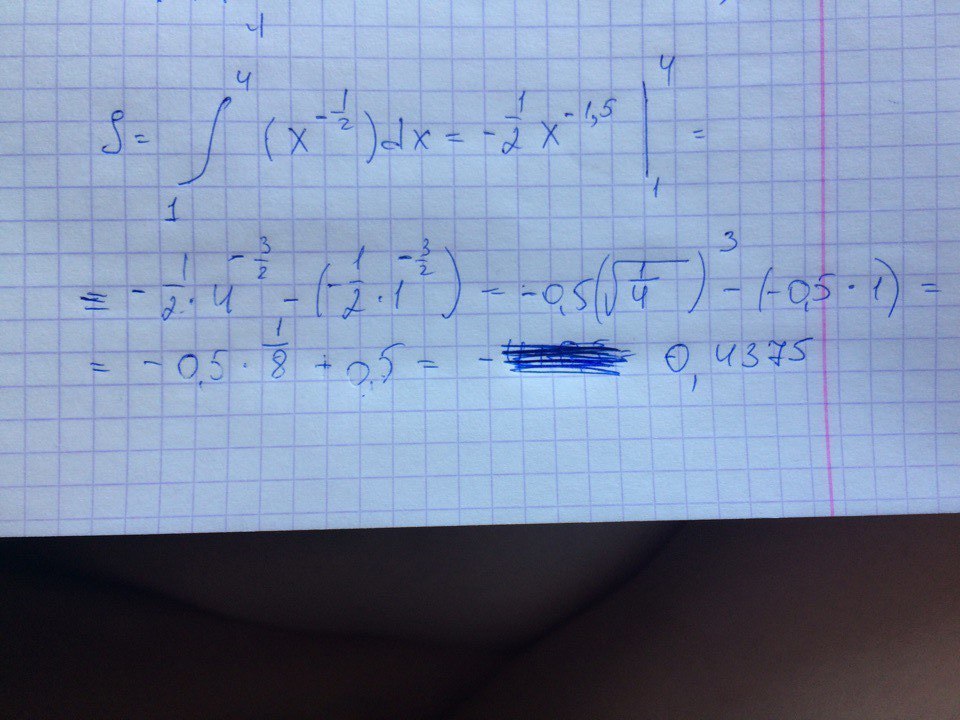 4
S = ∫₁⁴ (x^(-1/2)) dx = -1/2 x^(-1,5) |₁⁴ =
= -1/2 · 4^(-3/2) - (-1/2 · 1^(-3/2)) = -0,5(√(1/4))³ - (-0,5 · 1) =
= -0,5 · 1/8 + 0,5 = - 0,4375